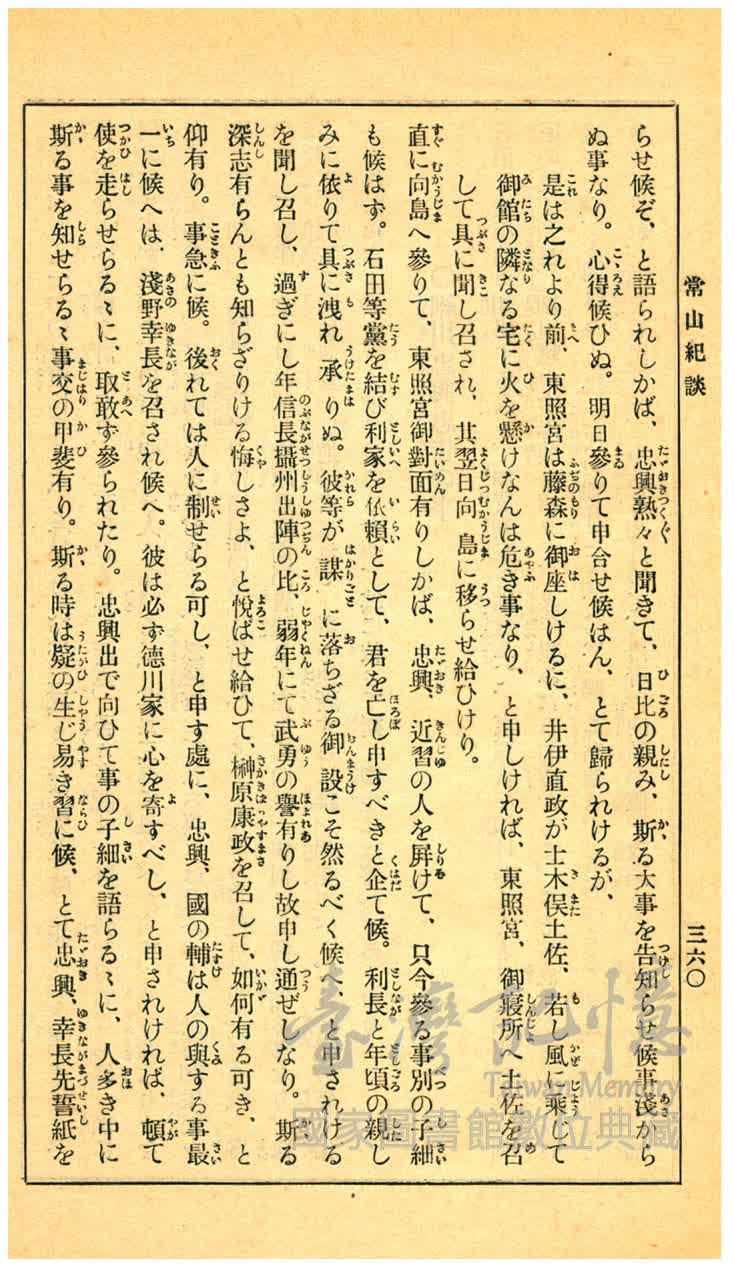 常山紀談
三六〇
らせ候ぞ、と語られしかば、忠興熟々と聞きて、日比の親み、斯る大事を告知らせ候事淺から
ぬ事なり。心得候ひぬ。明日參りて申合せ候はん、とて歸られけるが、
是は之れより前、東照宮は藤森に御座しけるに、井伊直政が士木俣土佐、若し風に乘じて
御館の隣なる宅に火を懸けなんは危き事なり、と申しければ、東照宮、御寢所へ土佐を召
して具に聞し召され、其翌日向島に移らせ給ひけり。
直に向島へ參りて、東照宮御對面有りしかば、忠興、近習の人を屏けて、只今參る事別の子細
も候はず。石田等黨を結び利家を依賴として、君を亡し申すべきと企て候。利長と年頃の親し
みに依りて具に洩れ承りぬ。彼等が謀に落ちざる御設こそ然るべく候へ、と申されける
を聞し召し、過ぎにし年信長攝州出陣の比、弱年にて武勇の譽有りし故申し通ぜしなり。斯る
深志有らんとも知らざりける悔しさよ、と悅ばせ給ひて、榊原康政を召して、如何有る可き、と
仰有り。事急に候。後れては人に制せらる可し、と申す處に、忠興、國の輔は人の與する事最
一に候へは、淺野幸長を召され候へ。彼は必ず德川家に心を寄すべし、と申されければ、頓て
使を走らせらるゝに、取敢ず參られたり。忠興出で向ひて事の子細を語らるゝに、人多き中に
斯る事を知せらるゝ事交の甲斐有り。斯る時は疑の生じ易き習に候、とて忠興、幸長先誓紙を
臺灣記憶
Taiwan Memory
國家圖書館數位典藏